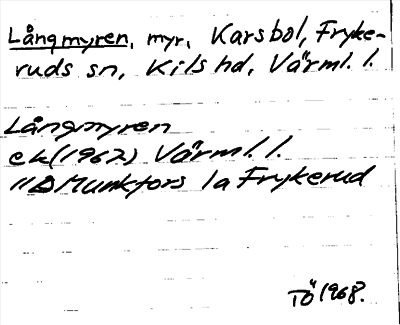 Långmyren, myr, Karsbol, Fryke-
ruds sn, Kils hd, Värml. l.
Långmyren
ek (1962) Värml. l.
11D Munkfors 1a Frykerud
TÖ 1968.